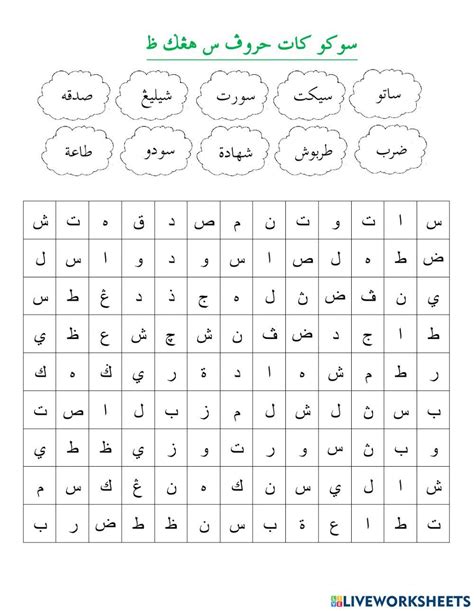 سوكو كات حروڤ س هڠݢ ظ
ساتو سيكت سورت شيليڠ صدقه
ضرب طربوش شهادة سودو طاعة
س ا ت و ت ن م ص د ق ه ت ش
ض ط ه ل ص ا س و د و ا س ل
ي ن ڤ ض ث ل ه ج ذ د ڠ ط س
ط ا ج د ض ڤ ن ش چ ش ع ظ ي
ر ط م ش ه ا د ة ر ي ݢ ه ك
ب س ث ل ش ل م ز ب ل ا ص ت
و ب ث س و ر ت و ز ي ظ ط ي
ش ا ل ي س ن ك ه ن ڠ ك س م
ت ط ا ع ة ب س ن ظ ط ض ر ب
LIVEWORKSHEETS